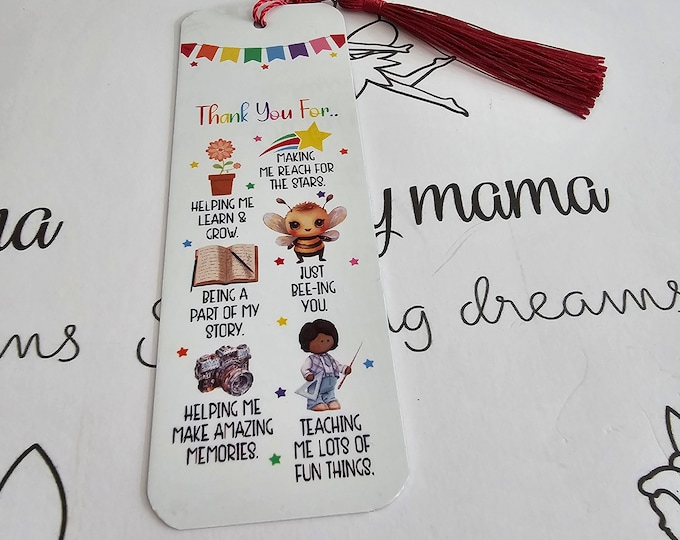 Thank You For..
HELPING ME
LEARN &
GROW.
MAKING
ME REACH FOR
THE STARS.
BEING A
PART OF MY
STORY.
JUST
BEE-ING
YOU.
HELPING ME
MAKE AMAZING
MEMORIES.
TEACHING
ME LOTS OF
FUN THINGS.
mama
dreams